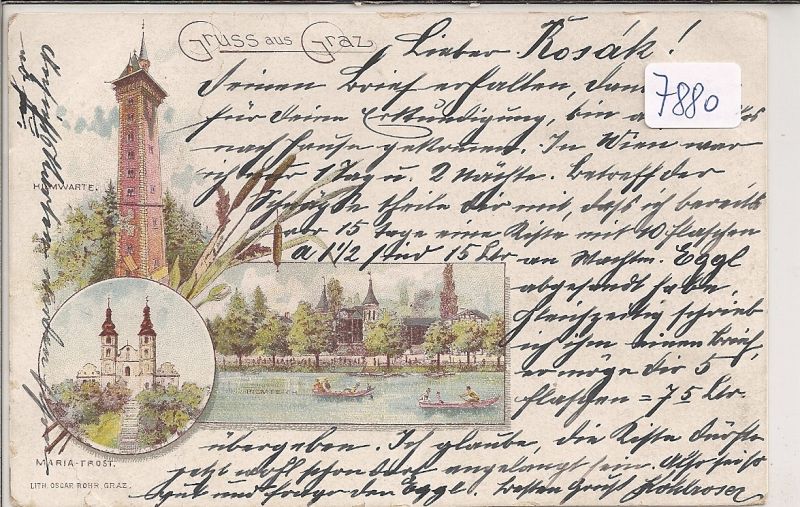 Gruss aus Graz
Lieber Kosák!
deinen Brief erhalten,
7880
für deine Erkundigung, bin
nach Hause gekommen. In Wien war
ich 1 Tag u. 2 Nächte. Betreff der
theile dir mit, dass ich bereits
vor 15 Tage eine Kiste mit 10 Flaschen
a 1 1/2 sind 15 Ltr an Wachtm. Eggl
abgesandt habe,
Gleichzeitig schrieb
ich ihm einen Brief,
er möge dir 5
Flaschen = 7 5 Ltr.
übergeben. Ich glaube, die Kiste dürfte
jetzt wohl schon dort angelangt sein. Also sei so
gut und frage den Eggl. besten Gruß
HILMWARTE.
HILMTEICH
MARIA-TROST.
LITH. OSCAR ROHR, GRAZ.